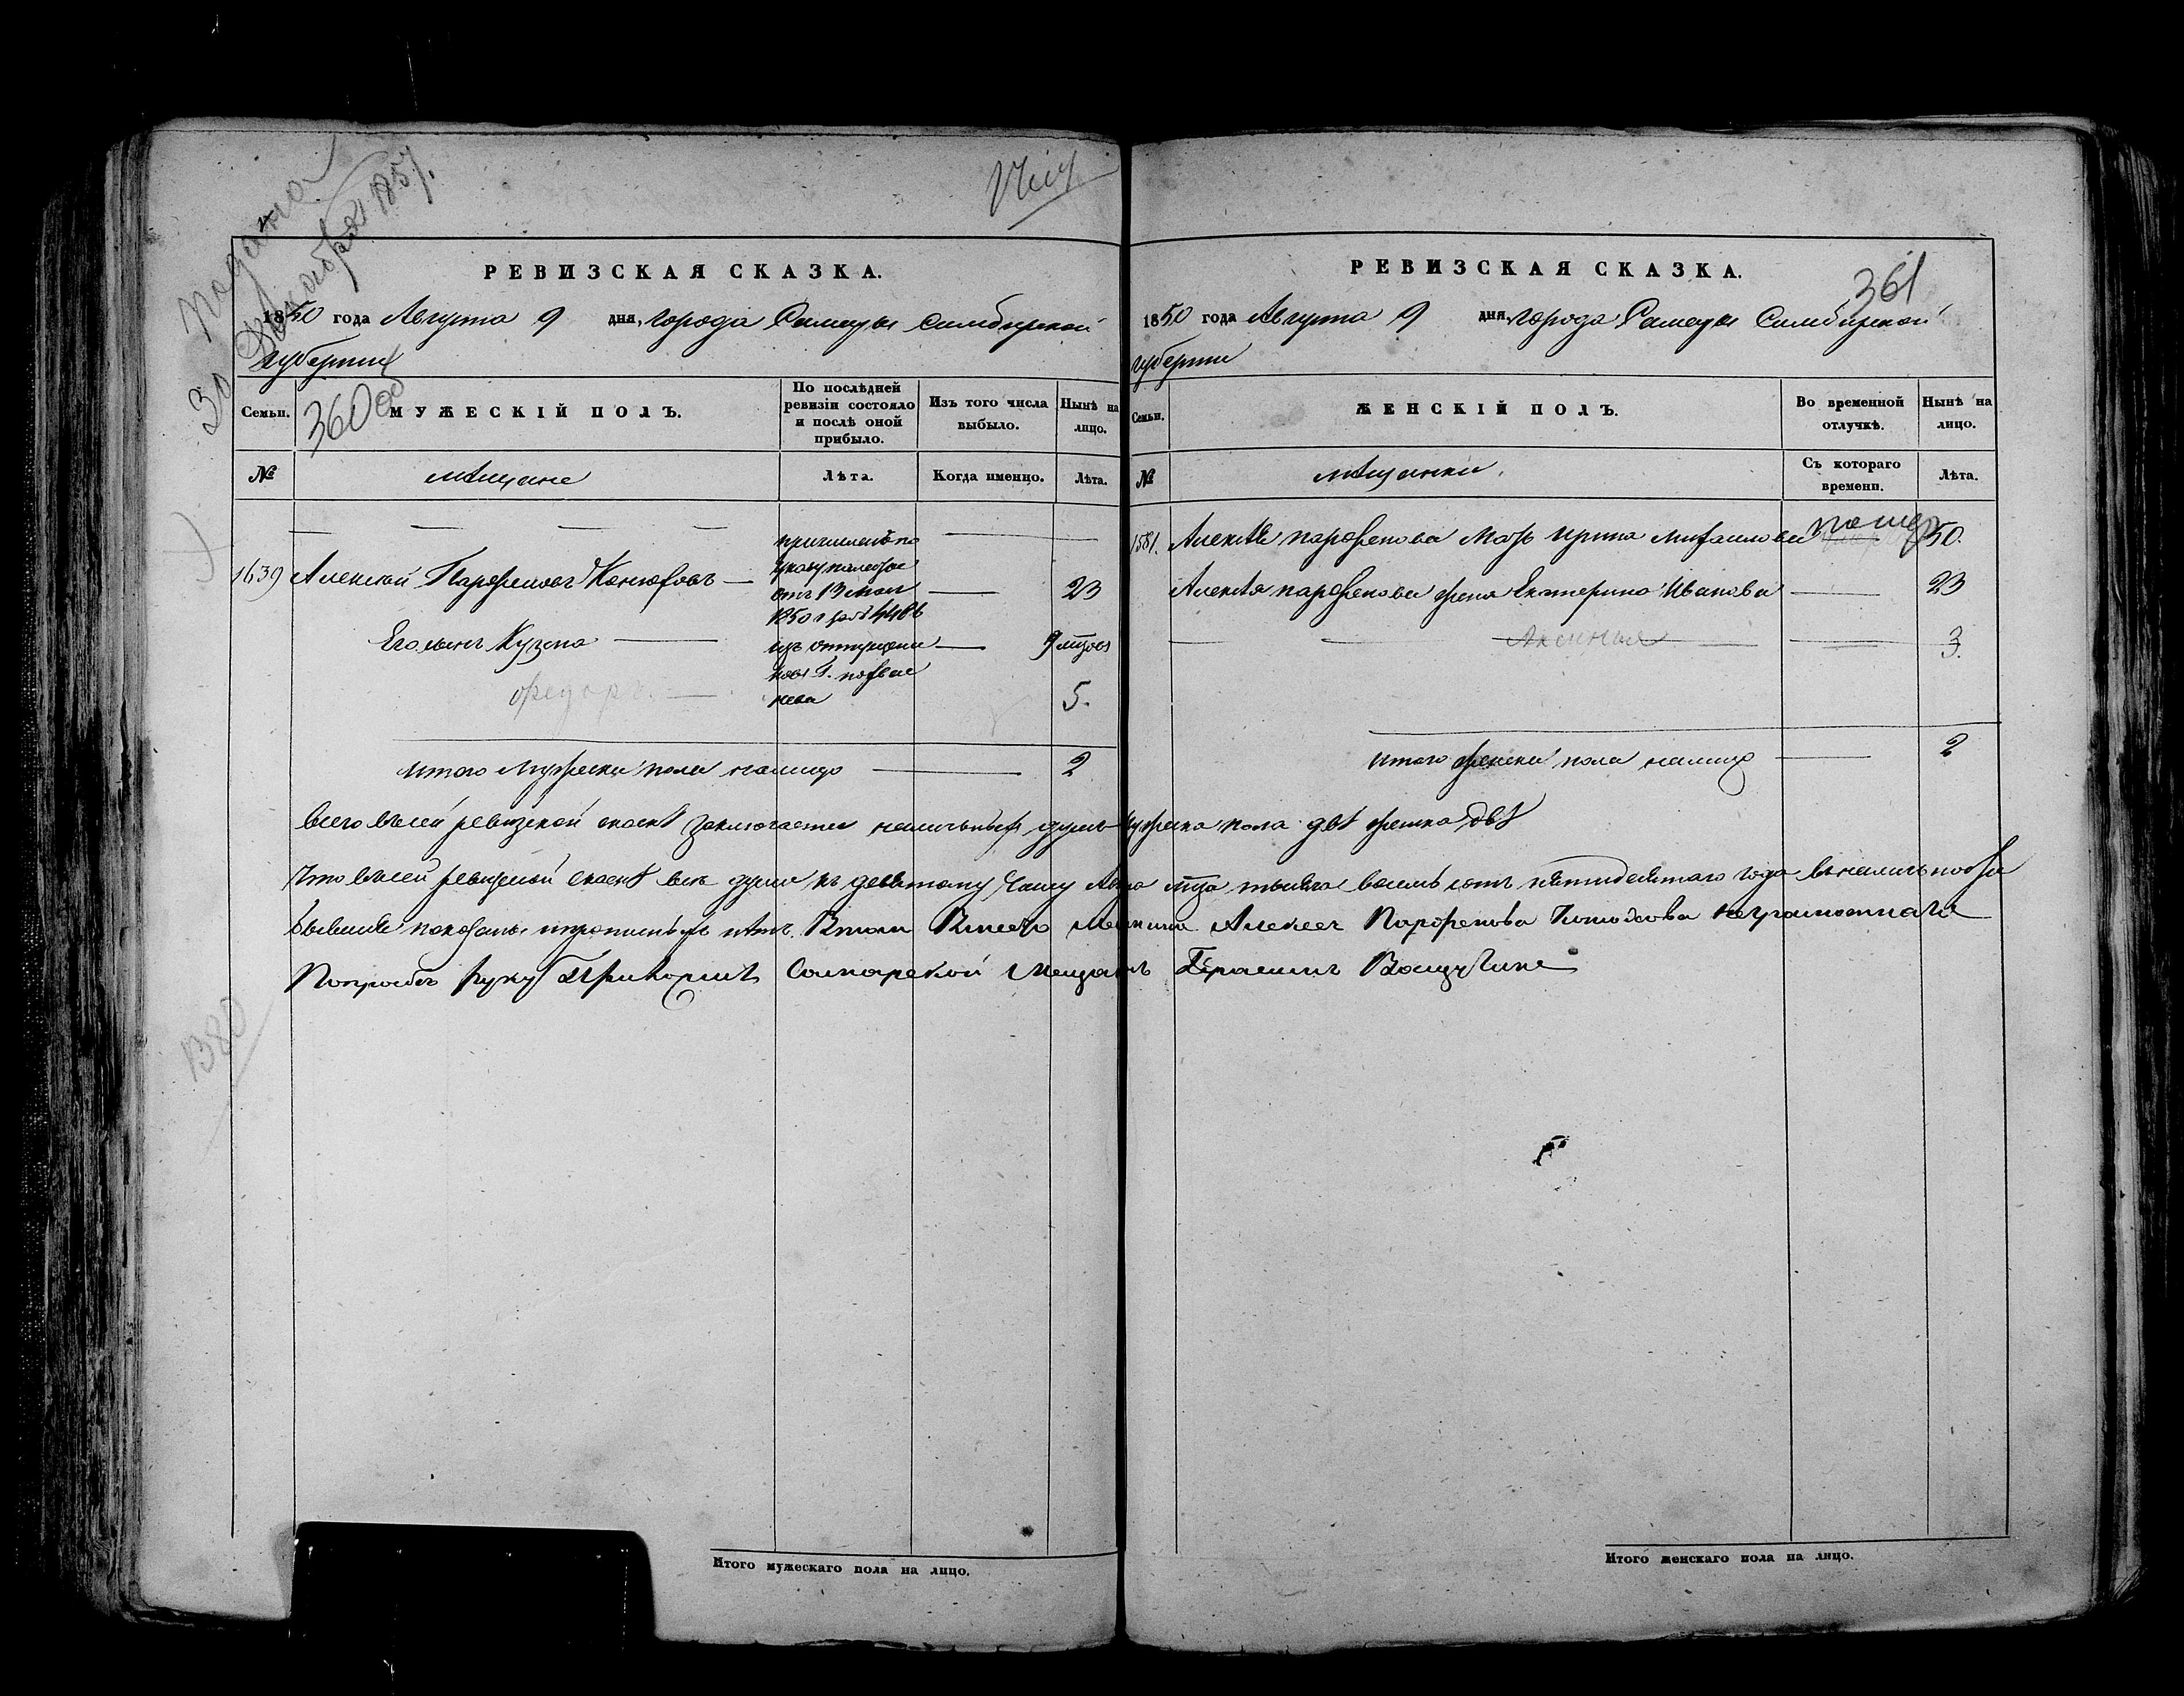 Подана
30 Декабря 1857.
РЕВИЗСКАЯ СКАЗКА.
1850 года Августа 9 дня, города Самары Симбирской
губернии
360 об
Семьи.
МУЖЕСКІЙ ПОЛЪ.
По послѣдней
ревизіи состояло
и послѣ оной
прибыло.
Изъ того числа
выбыло.
Нынѣ на
лицо.
№
мѣщане
Лѣта.
Когда именно.
Лѣта.
причисленъ по
указу палаты
отъ 13 Мая
1850 г за №
1639 Алексей Парфенов 23
Его сынъ Кузма 9 мцов
изъ отпущен
федоръ. 5.
итого мужеска пола налицо 2
РЕВИЗСКАЯ СКАЗКА.
361
1850 года Августа 9 дня, города Самары Симбирской
губернии
Семьи.
ЖЕНСКІЙ ПОЛЪ.
Во временной
отлучкѣ.
Нынѣ на
лицо.
№
мѣщанки.
Съ котораго
времени.
Лѣта.
1581. Алексѣя парфенова мать ирина михаилова 50.
Алексѣя парфенова жена Екатерина Иванова 23
Аксинья 3.
итого женска пола налицо 2
всего въ сей ревизской сказкѣ заключается наличныхъ душъ мужеска пола двѣ женска двѣ
Что в сей ревизской сказкѣ все души къ девятому числу Авгу мца тысяча восемь сотъ пятидесятаго года в наличности
бывшие показаны и прописныхъ нѣтъ. В том Вместо Мещанина Алексея Парфенова неграмотнаго
Попрозбѣ руку приложилъ Самарской Мещанинъ Герасимъ
1380
Итого мужескаго пола на лицо.
Итого женскаго пола на лицо.